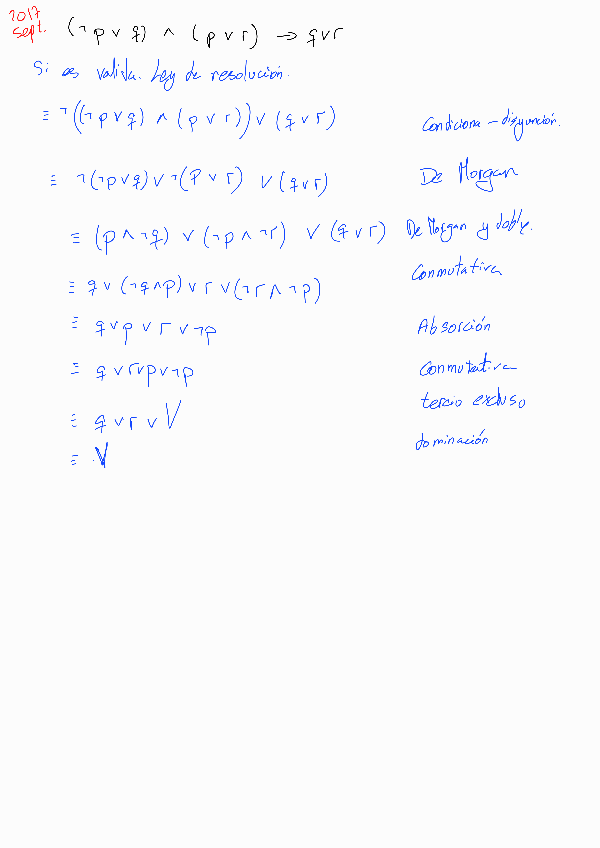 2017
sept. (¬p ∨ q) ∧ (p ∨ r) → q∨r
Si es valida. Ley de resolución.
≡ ¬((¬p ∨ q) ∧ (p ∨ r)) ∨ (q ∨ r) Condiciona - disyunción.
≡ ¬(¬p∨q) ∨ ¬(p ∨ r) ∨ (q∨r) De Morgan
≡ (p ∧ ¬q) ∨ (¬p ∧ ¬r) ∨ (q ∨ r) De Morgan y doble.
≡ q ∨ (¬q∧p) ∨ r ∨ (¬r ∧ ¬p) Conmutativa
≡ q ∨ p ∨ r ∨ ¬p Absorción
≡ q ∨ r ∨ p ∨ ¬p Conmutativa
≡ q ∨ r ∨ V tercio excluso
≡ V dominación